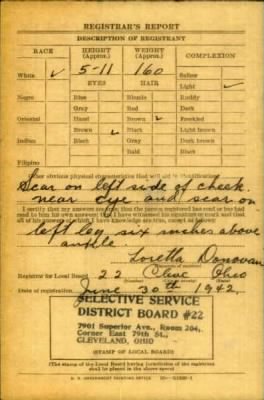 REGISTRAR'S REPORT
DESCRIPTION OF REGISTRANT
RACE HEIGHT (Approx.) WEIGHT (Approx.) COMPLEXION
White ✓ 5-11 160 Sallow
EYES HAIR Light ✓
Negro Blue Blonde Ruddy
Gray Red Dark
Oriental Hazel Brown ✓ Freckled
Brown ✓ Black Light brown
Indian Black Gray Dark brown
Bald Black
Filipino
Other obvious physical characteristics that will aid in identification
Scar on left side of cheek
near eye and scar on
I certify that my answers are true; that the person registered has read or has had
read to him his own answers; that I have witnessed his signature or mark and that
all of his answers of which I have knowledge are true, except as follows:
left leg six inches above
ankle
Loretta Donovan
Registrar for Local Board 22 Cleve Ohio
Date of registration June 30th 1942
SELECTIVE SERVICE
DISTRICT BOARD #22
7901 Superior Ave., Room 204,
Corner East 79th St.,
CLEVELAND, OHIO
(STAMP OF LOCAL BOARD)
(The stamp of the Local Board having jurisdiction of the registrant
shall be placed in the above space)
U. S. GOVERNMENT PRINTING OFFICE